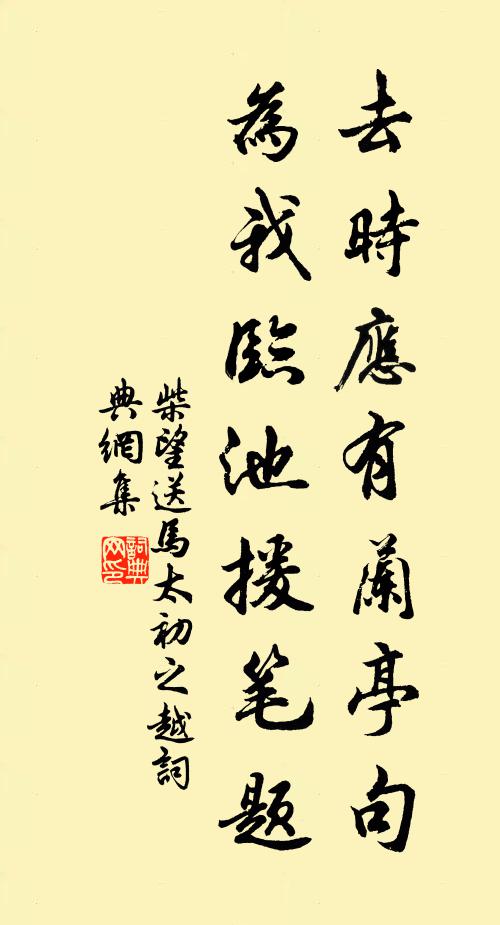 去時應有蘭亭句
為我臨池援笔题
柴望送馬太初之越詞
典網集
詞典网印